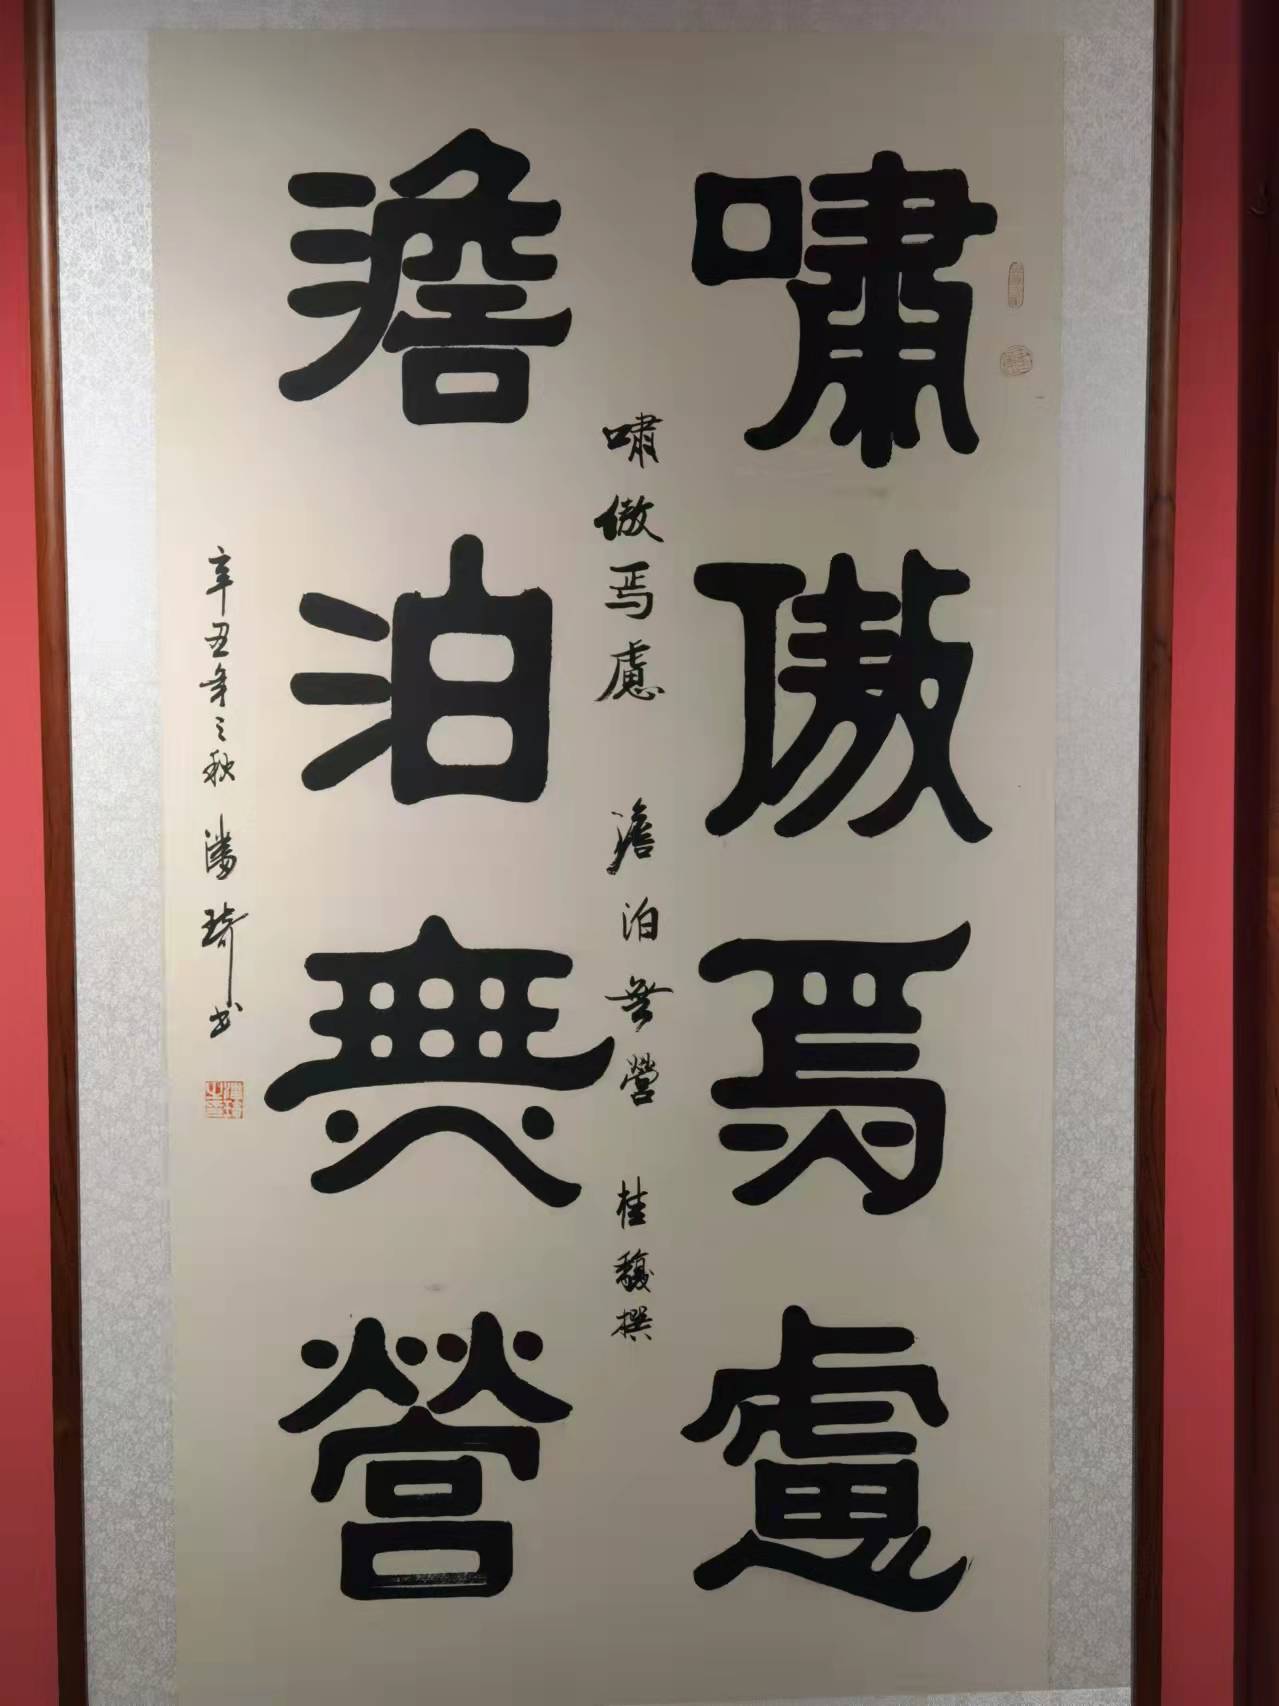 嘯傲焉慮
澹泊無營
嘯傲焉慮 澹泊無營 桂馥撰
辛丑年之秋 潘琦书